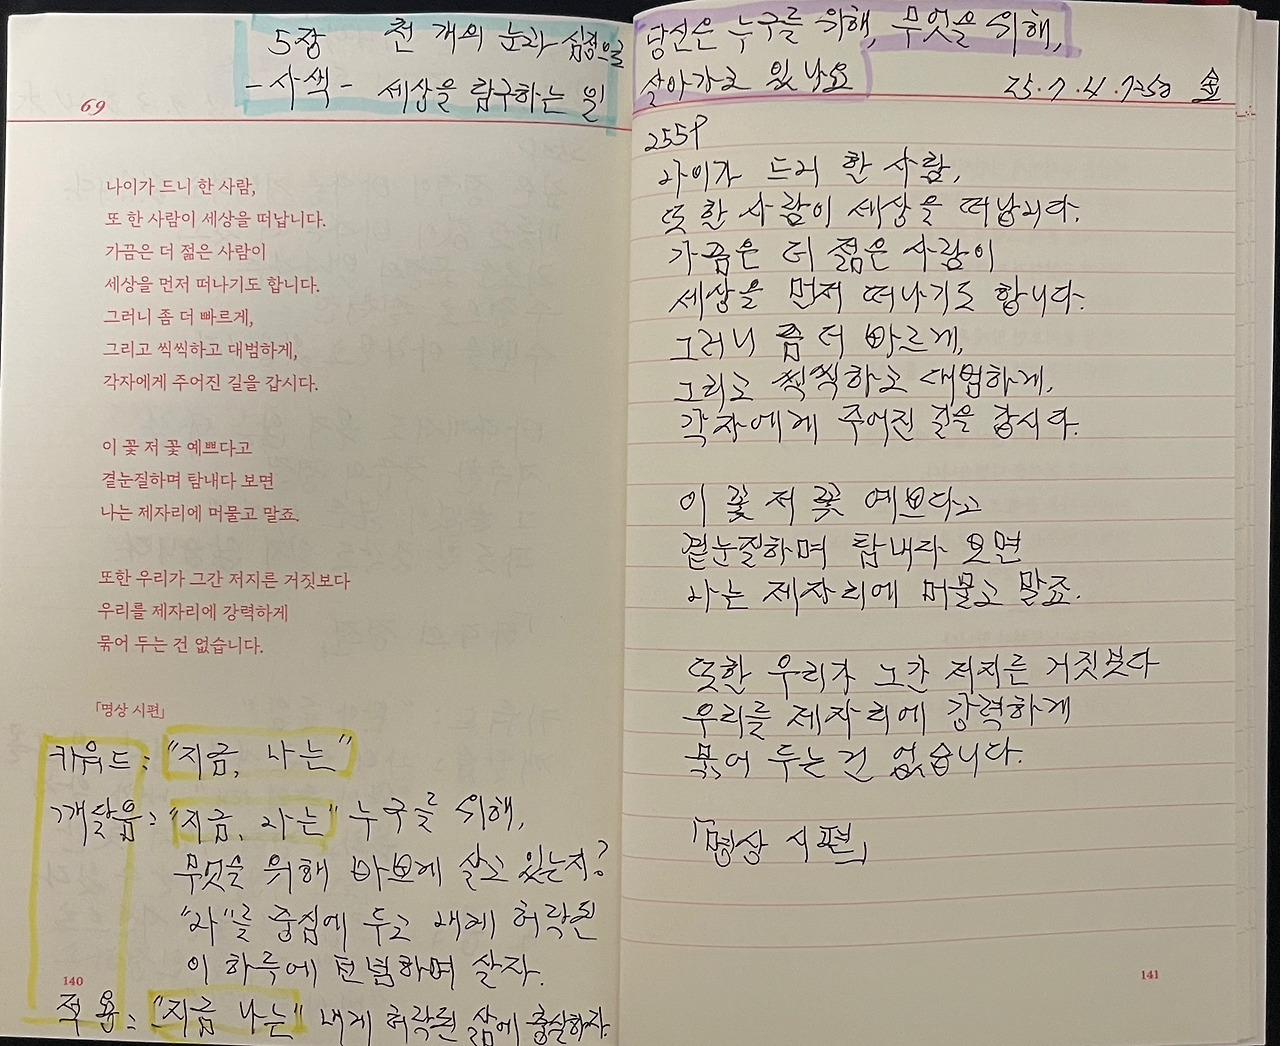 5장 천 개의 눈과 심장으로
-사색- 세상을 탐구하는 일
69
나이가 드니 한 사람,
또 한 사람이 세상을 떠납니다.
가끔은 더 젊은 사람이
세상을 먼저 떠나기도 합니다.
그러니 좀 더 빠르게,
그리고 씩씩하고 대범하게,
각자에게 주어진 길을 갑시다.
이 꽃 저 꽃 예쁘다고
곁눈질하며 탐내다 보면
나는 제자리에 머물고 말죠.
또한 우리가 그간 저지른 거짓보다
우리를 제자리에 강력하게
묶어 두는 건 없습니다.
「명상 시편」
키워드: "지금, 나는"
깨달음: "지금, 나는" 누구를 위해,
무엇을 위해 바쁘게 살고 있는지?
"나"를 중심에 두고 내게 허락된
이 하루에 전념하며 살자.
140
적용: "지금 나는" 내게 허락된 삶에 충실하자.
당신은 누구를 위해, 무엇을 위해,
살아가고 있나요
25.7.4.7:50 金
255P
나이가 드니 한 사람,
또 한 사람이 세상을 떠납니다.
가끔은 더 젊은 사람이
세상을 먼저 떠나기도 합니다.
그러니 좀 더 빠르게,
그리고 씩씩하고 대범하게,
각자에게 주어진 길을 갑시다.
이 꽃 저 꽃 예쁘다고
곁눈질하며 탐내다 보면
나는 제자리에 머물고 말죠.
또한 우리가 그간 저지른 거짓보다
우리를 제자리에 강력하게
묶어 두는 건 없습니다.
「명상 시편」
141